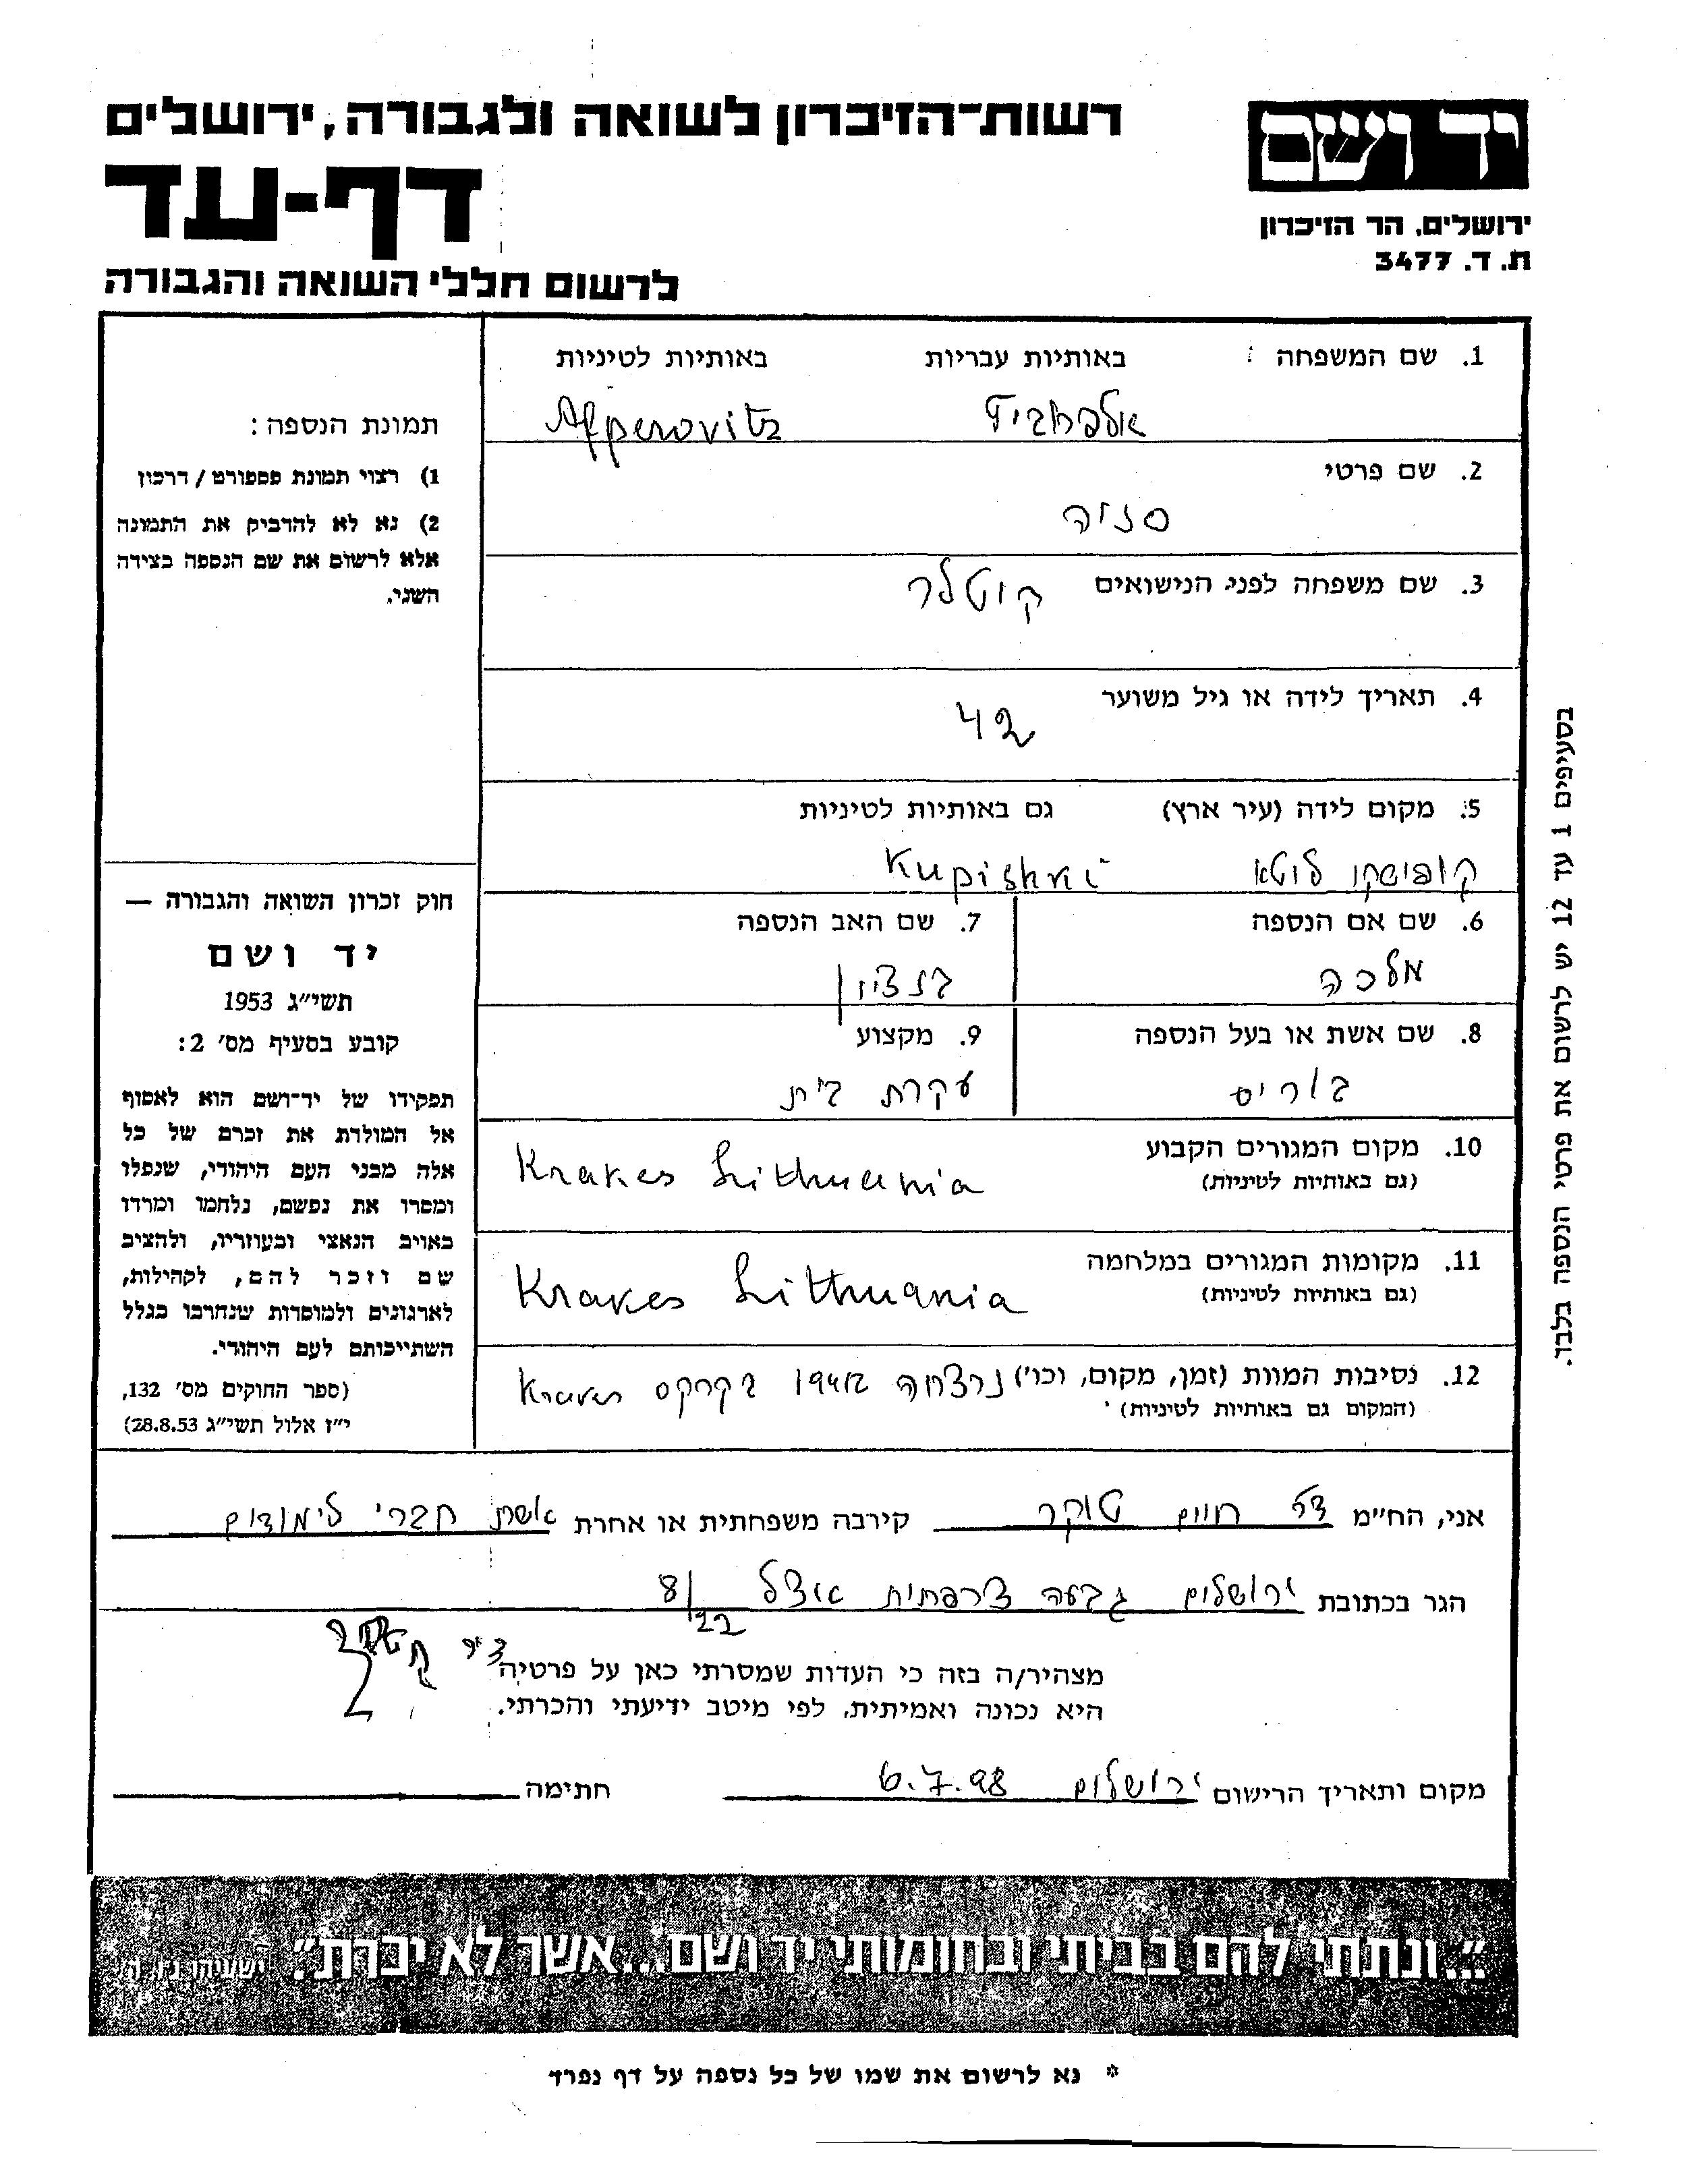 רשות-הזיכרון לשואה ולגבורה, ירושלים
דף-עד
לרשום חללי השואה והגבורה
יד ושם
ירושלים, הר הזיכרון
ת. ד. 3477
1. שם המשפחה : באותיות עבריות באותיות לטיניות
Afperovitz
2. שם פרטי
סוניה
3. שם משפחה לפני הנישואים קוטלר
4. תאריך לידה או גיל משוער
42
5. מקום לידה (עיר ארץ) גם באותיות לטיניות
קופישקי ליטא Kupishki
6. שם אם הנספה
מלכה
7. שם האב הנספה
בנציון
8. שם אשת או בעל הנספה
בוריס
9. מקצוע
עקרת בית
10. מקום המגורים הקבוע
(גם באותיות לטיניות)
Krakes Lithuania
11. מקומות המגורים במלחמה
(גם באותיות לטיניות)
Krakes Lithuania
12. נסיבות המוות (זמן, מקום, וכו') נרצחה 1941/2 בקרקס Krakes
(המקום גם באותיות לטיניות)
תמונת הנספה:
1) רצוי תמונת פספורט / דרכון
2) נא לא להדביק את התמונה
אלא לרשום את שם הנספה בצידה
השני.
חוק זכרון השואה והגבורה —
יד ושם
תשי״ג 1953
קובע בסעיף מס' 2:
תפקידו של יד-ושם הוא לאסוף
אל המולדת את זכרם של כל
אלה מבני העם היהודי, שנפלו
ומסרו את נפשם, נלחמו ומרדו
באויב הנאצי ובעוזריו, ולהציב
שם וזכר להם, לקהילות,
לארגונים ולמוסדות שנחרבו בגלל
השתייכותם לעם היהודי.
(ספר החוקים מס' 132,
י״ז אלול תשי״ג 28.8.53)
בסעיפים 1 עד 12 יש לרשום את פרטי הנספה בלבד.
אני, הח״מ חיים טוקר קירבה משפחתית או אחרת אשת חברי לימודים
הגר בכתובת ירושלים גבעה צרפתית אצל 8/22
מצהיר/ה בזה כי העדות שמסרתי כאן על פרטיה
היא נכונה ואמיתית, לפי מיטב ידיעתי והכרתי.
מקום ותאריך הרישום ירושלים 6.7.98 חתימה
״...ונתתי להם בביתי ובחומותי יד ושם...אשר לא יכרת״. ישעיהו נו, ה
* נא לרשום את שמו של כל נספה על דף נפרד